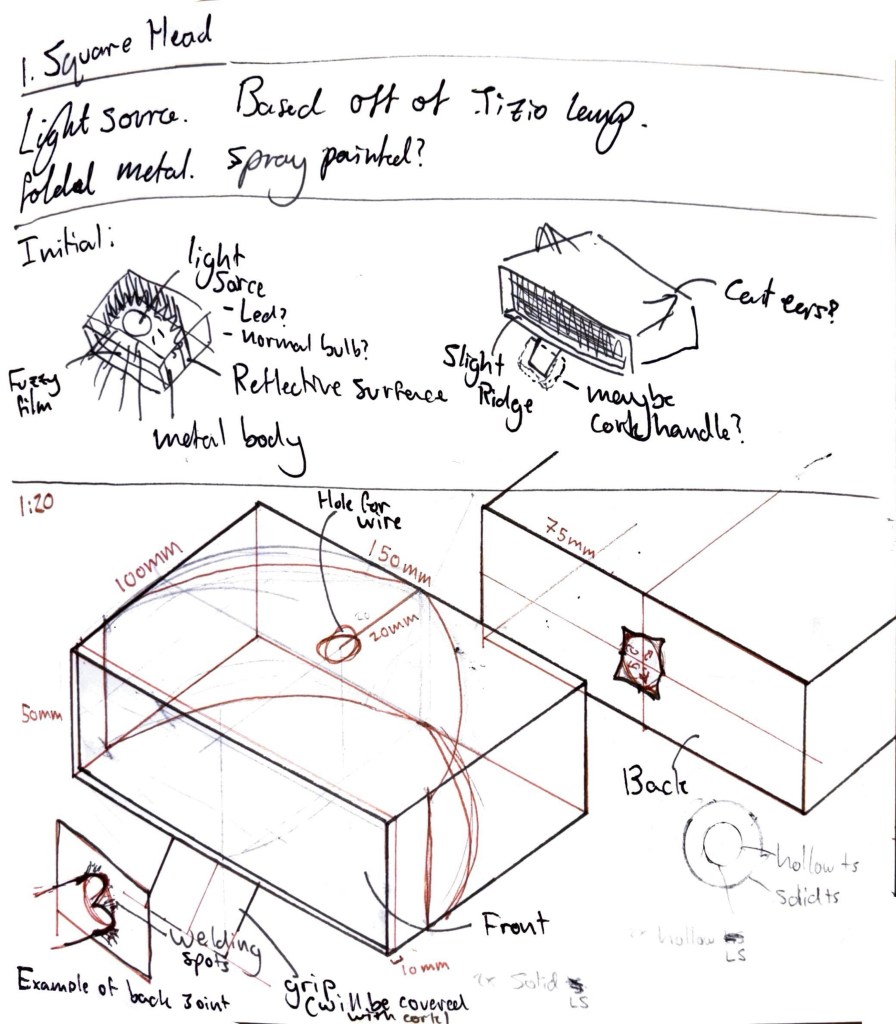 1. Square Head
Light source. Based off of Tizio lamp.
folded metal. Spray painted?
Initial:
light
Sorce
- Led?
- normal bulb?
Fuzzy
film
Reflective Surface
metal body
Cat ears?
Slight
Ridge
maybe
cork handle?
1:20
Hole for
wire
100mm
150mm
20mm
75mm
50mm
Back
hollow ts
Solid ts
Front
10mm
Welding
spots
Example of back Joint
grip
(will be covered
with cork)
hollow
LS
2x Solid
LS